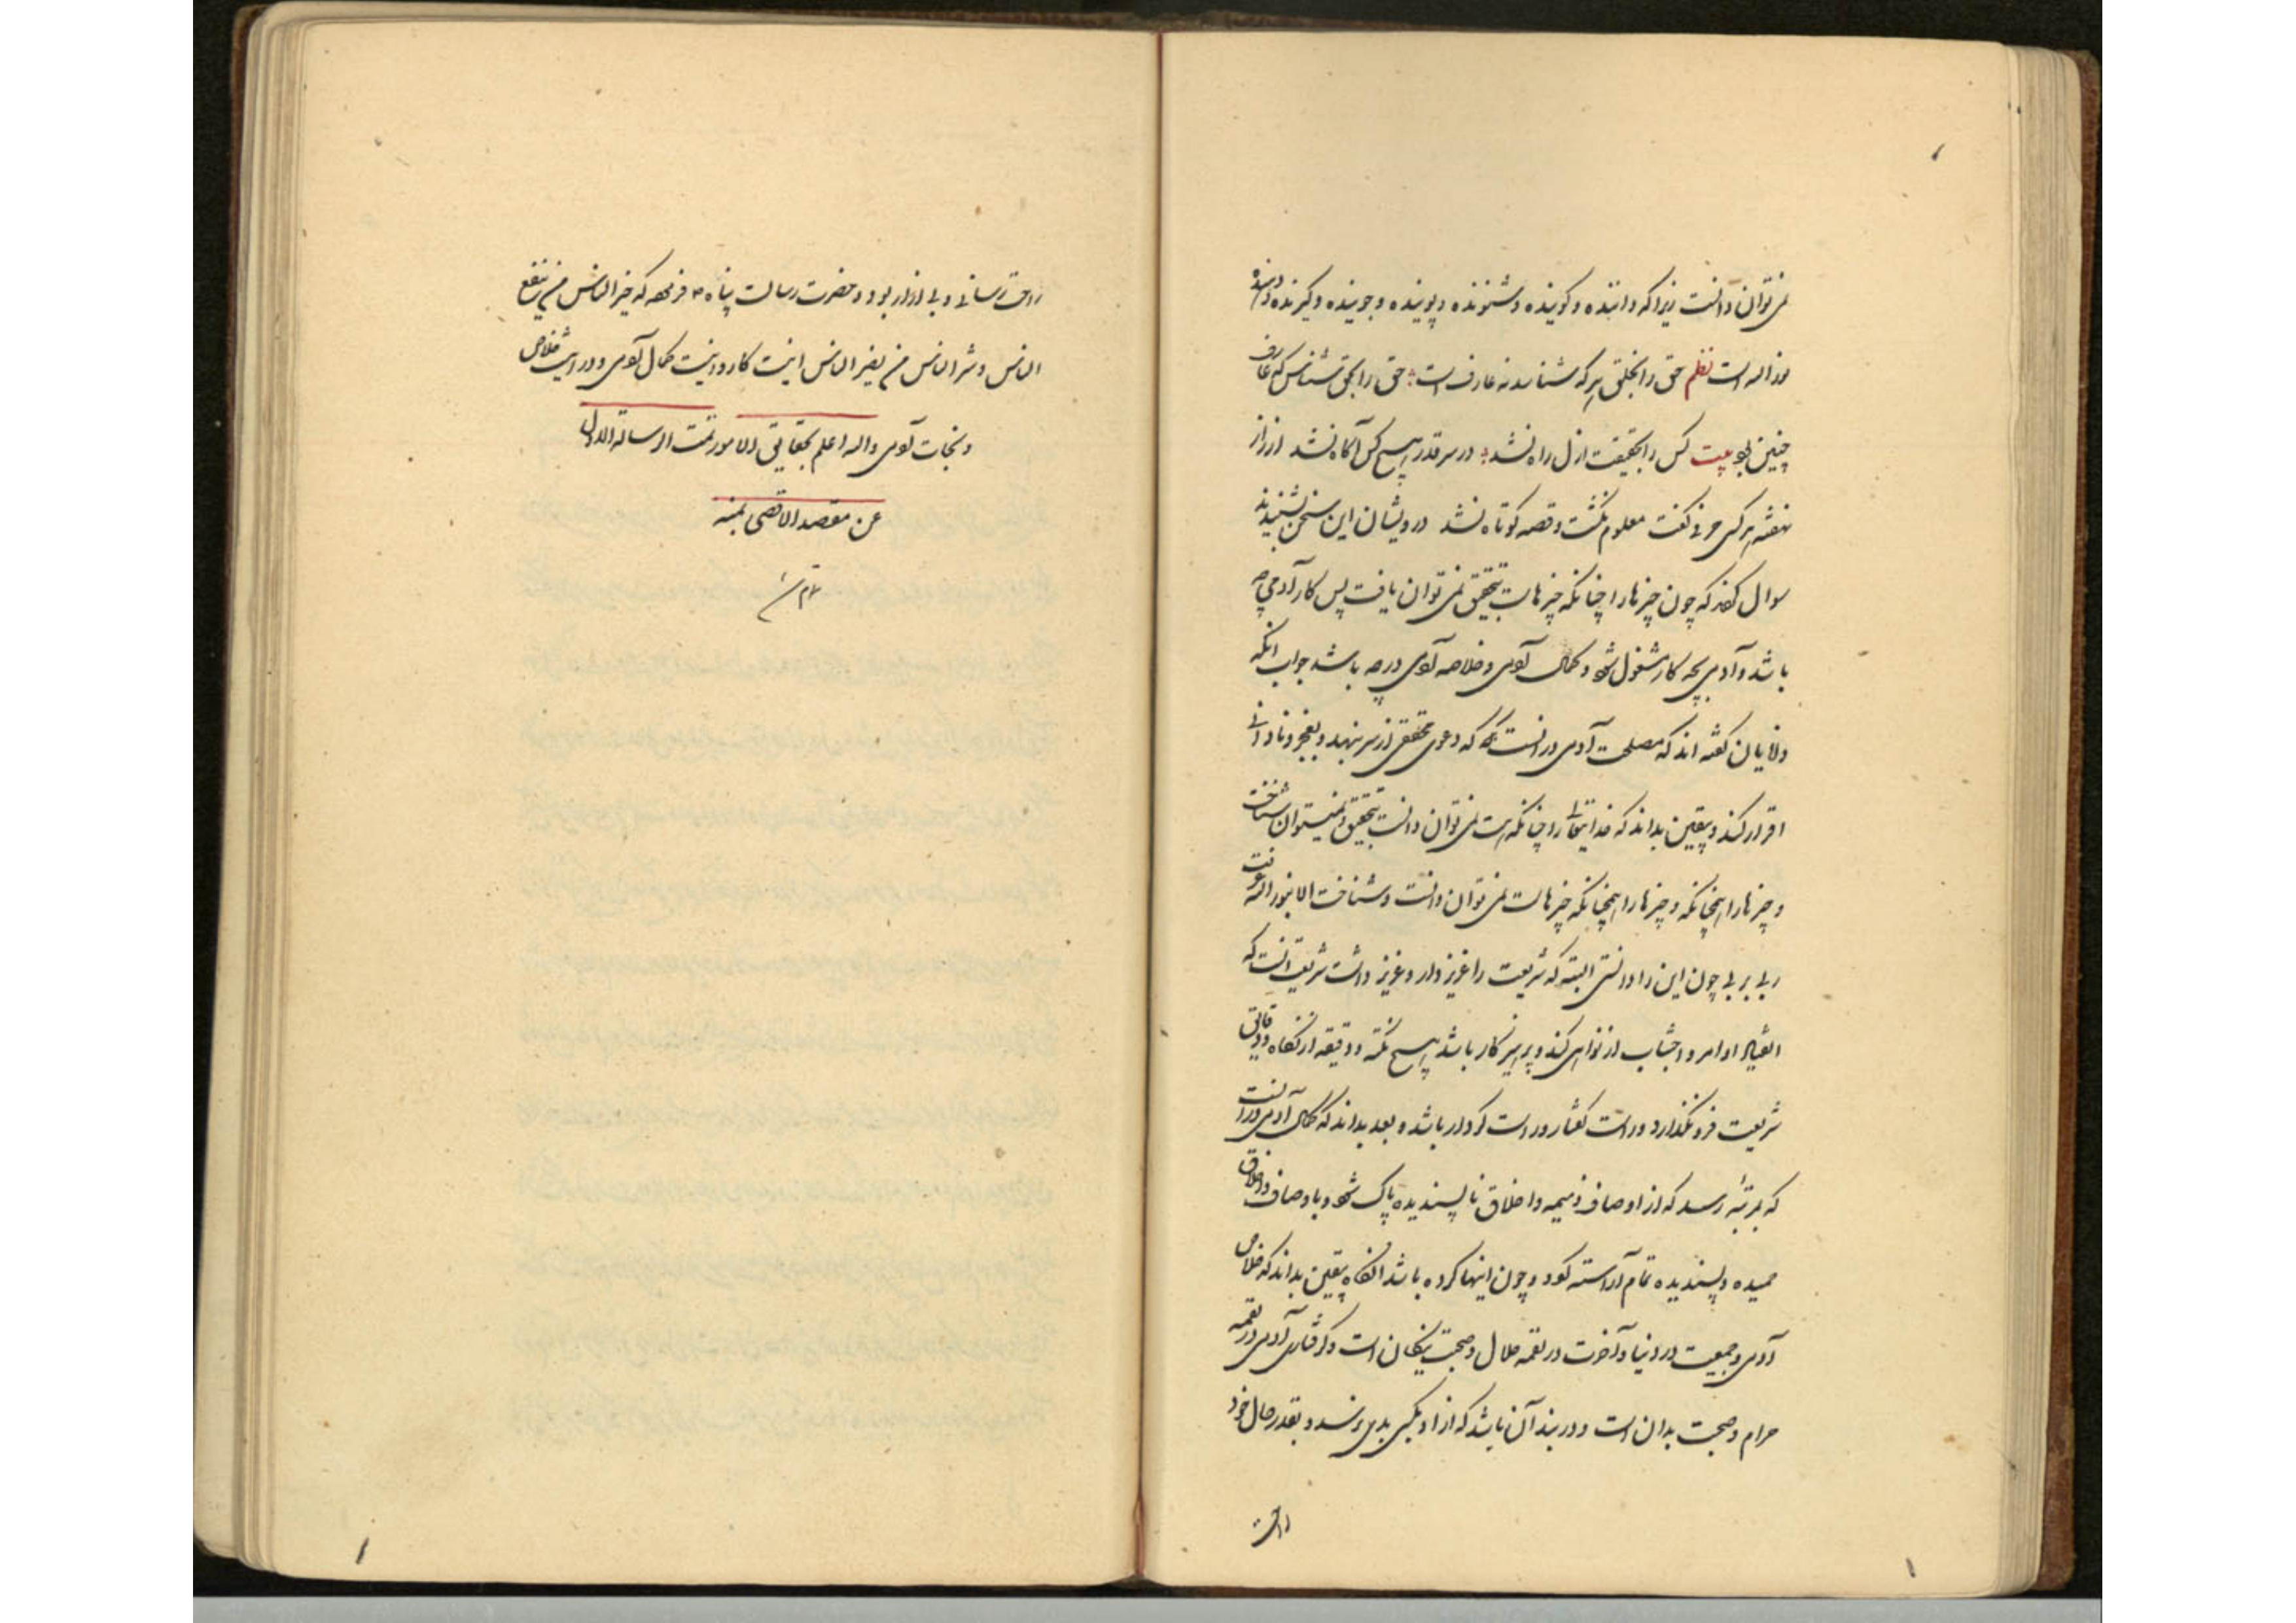 نمی توان دانست زیرا که داننده و کوینده و شنونده و پوینده و جوینده و کیرنده و دهنده
نور اله است نظم حق را بخلق هر که شناسد نه عارف است حق را بحق شناس که عارف
چنین بود بیت کس را بحقیقت ازل راه نشد در سر قدر هیچ کس آکاه نشد از راز
نهفته هر کسی حرفی کفت معلوم نکشت و قصه کوتاه نشد درویشان این سخن بشنیدند
سوال کردند که چون چیزها را چنانکه چیزهاست بتحقیق نمی توان یافت پس کار آدمی چه
باشد و آدمی بچه کار مشغول شود و کمال آدمی و خلاصه آدمی در چه باشد جواب انکه
دانایان کفته اند که مصلحت آدمی در انست که دعوی تحقیق از سر بنهد و بعجز و نادانی
اقرار کند و یقین بداند که خدایتعالی را چنانکه هست نمی توان دانست بتحقیق و نمیتوان شناخت
و چیزها را همچنانکه و چیزها را همچنانکه چیزهاست نمی توان دانست و شناخت الا بنور اله عرفت
ربی بربی چون این را دانستی البته که شریعت را عزیز دار و عزیز داشت شریعت انست که
امتثال اوامر و اجتناب از نواهی کند و پرهیزکار باشد هیچ نکته و دقیقه از نکاه و دقایق
شریعت فرو نکذارد و راست کفتار و راست کردار باشد و بعد بداند که کمال آدمی در انست
که بمرتبهٔ رسد که از اوصاف ذمیمه و اخلاق ناپسندیده پاک شود و باوصاف و اخلاق
حمیده و پسندیده تمام آراسته کردد و چون اینها کرده باشد انکاه یقین بداند که خلاص
آدمی و جمعیت در دنیا و آخرت در لقمه حلال و صحبت نیکان است و کرفتاری آدمی در لقمه
حرام و صحبت بدان است و در بند آن باشد که از او بکسی بدی نرسد و بقدر حال خود
راحت
راحت رساند و بی ازار بود و حضرت رسالت پناه ص فرموده که خیر الناس من ینفع
الناس و شر الناس من یضر الناس اینست کار و اینست کمال آدمی و در اینست خلاص
و نجات آدمی و اله اعلم بحقایق الامور تمت الرسالة الاولی
عن مقصد الاقصی بمنه
تم